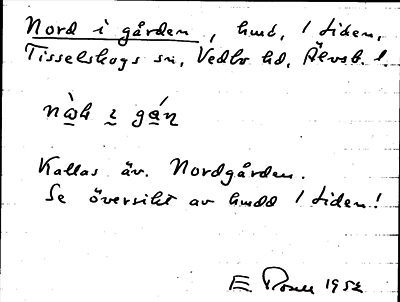 Nord i gården, hmd, I Liden,
Tisselskogs sn, Vedbo hd, Älvsb. l.
Kallas äv. Nordgården.
Se översikt av hmdd I Liden!
E 1952